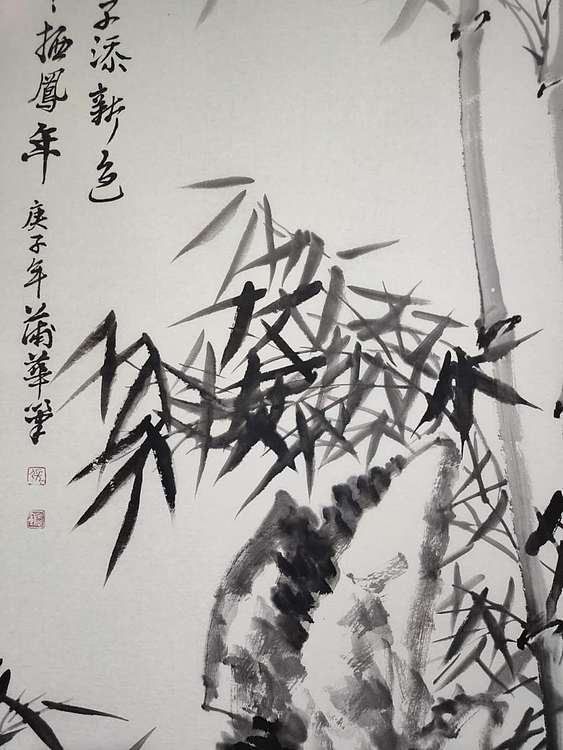 子添新色
栖鳳年
庚子年蒲華筆